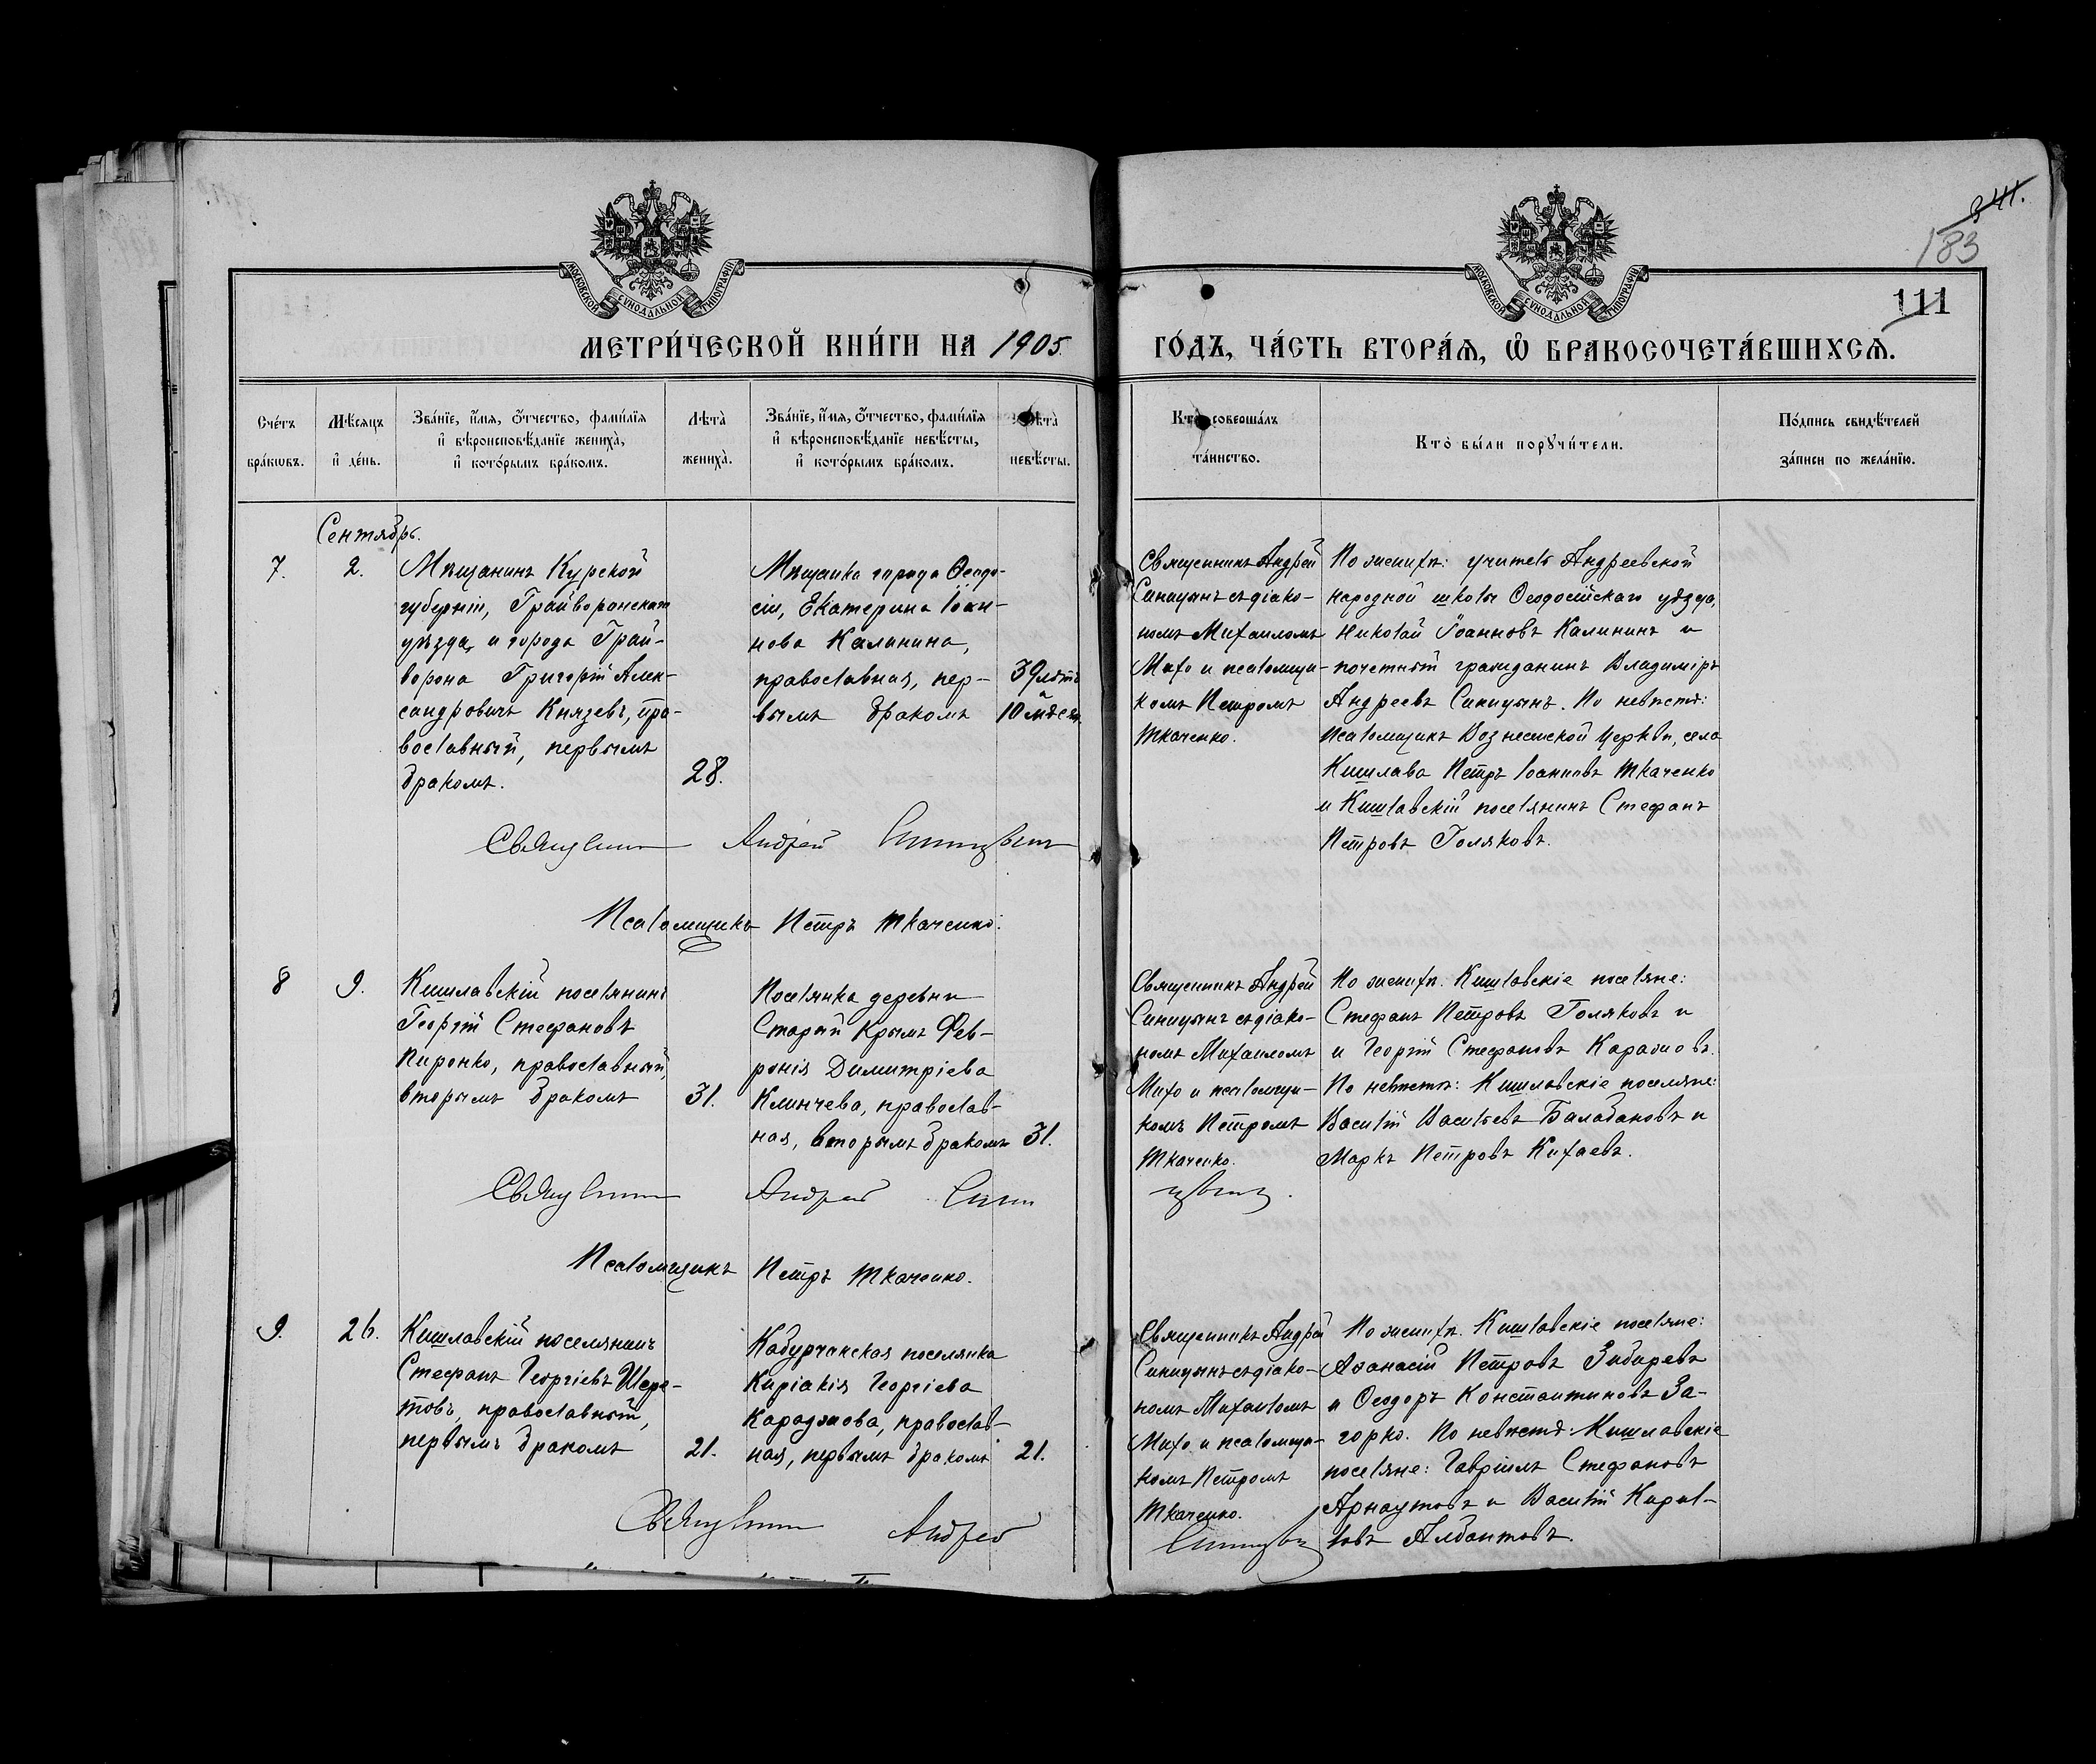 341.
183
111
МОСКОВСКОЙ СУНОДАЛЬНОЙ ТИПОГРАФІИ
МОСКОВСКОЙ СУНОДАЛЬНОЙ ТИПОГРАФІИ
МЕТРИ́ЧЕСКОЙ КНИ́ГИ НА 1905
ГО́ДЪ, ЧА́СТЬ ВТОРА́Ѧ, Ѽ БРАКОСОЧЕТА́ВШИХСѦ.
Сче́тъ
бра́кωвъ.
Мѣ́сяцъ
и де́нь.
Зва́нїе, и́мя, ѻ́тчество, фами́лїя
и вѣроисповѣ́данїе жениха̀,
и кото́рымъ бра́комъ.
Лѣта̀
жениха̀.
Зва́нїе, и́мя, ѻ́тчество, фами́лїя
и вѣроисповѣ́данїе невѣ́сты,
и кото́рымъ бра́комъ.
Лѣта̀
невѣ́сты.
Кто̀ соверша́лъ
та́инство.
Кто̀ бы́ли порꙋчи́тели.
По́дпись свидѣ́телей
за́писи по жела́нїю.
Сентябрь.
7.
2.
Мѣщанинъ Курской
губерніи, Грайворонскаго
уѣзда, и города Грай-
ворона Григорій Алек-
сандровичъ Князевъ, пра-
вославный, первымъ
бракомъ.
28.
Мѣщанка города Ѳеодо-
сіи, Екатерина Іоан-
нова Калинина,
православная, пер-
вымъ бракомъ
39 лѣтъ
10 мѣсяц.
Священникъ Андрей
Синицынъ съ діако-
номъ Михаиломъ
Михо и псаломщи-
комъ Петромъ
Ткаченко.
По женихѣ: учитель Андреевской
народной школы Ѳеодосійскаго уѣзда,
Николай Іоанновъ Калининъ и
почетный гражданинъ Владиміръ
Андреевъ Синицынъ. По невѣстѣ:
псаломщикъ Вознесенской церкви, села
Кишлава Петръ Іоанновъ Ткаченко
и Кишлавскій поселянинъ Стефанъ
Петровъ Голяковъ.
Священникъ Андрей Синицынъ
Псаломщикъ Петръ Ткаченко.
8
9.
Кишлавскій поселянинъ
Георгій Стефановъ
Пиронко, православный,
вторымъ бракомъ
31.
Поселянка деревни
Старый Крымъ Фев-
ронія Димитріева
Клинчева, православ-
ная, вторымъ бракомъ
31.
Священникъ Андрей
Синицынъ съ діако-
номъ Михаиломъ
Михо и псаломщи-
комъ Петромъ
Ткаченко.
По женихѣ. Кишлавскіе поселяне:
Стефанъ Петровъ Голяковъ и
и Георгій Стефановъ
По невѣстѣ: Кишлавскіе поселяне:
Василій Васильевъ Балабановъ и
Маркъ Петровъ Кихаевъ.
Священникъ Андрей Синицынъ.
Псаломщикъ Петръ Ткаченко.
9.
26.
Кишлавскій поселянинъ
Стефанъ Георгіевъ Шере-
товъ, православный,
первымъ бракомъ
21.
Кабурчакская поселянка
Киріакія Георгіева
Караджова, православ-
ная, первымъ бракомъ
21.
Священникъ Андрей
Синицынъ съ діако-
номъ Михаиломъ
Михо и псаломщи-
комъ Петромъ
Ткаченко.
По женихѣ. Кишлавскіе поселяне:
Аѳанасій Петровъ Зибаревъ
и Ѳеодоръ Константиновъ За-
горко. По невѣстѣ: Кишлавскіе
поселяне: Гавріилъ Стефановъ
Арнаутовъ и Василій Кирил-
ловъ Албантовъ.
Священникъ Андрей Синицынъ